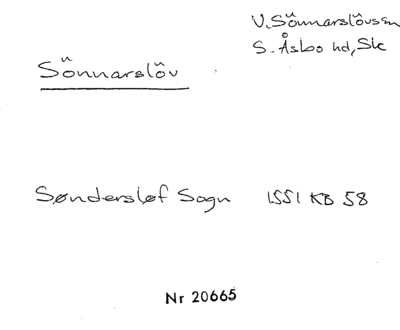 V. Sönnarslövs sn
S. Åsbo hd, Sk
Sönnarslöv
Søndersløf Sogn 1551 KB 58
Nr 20665